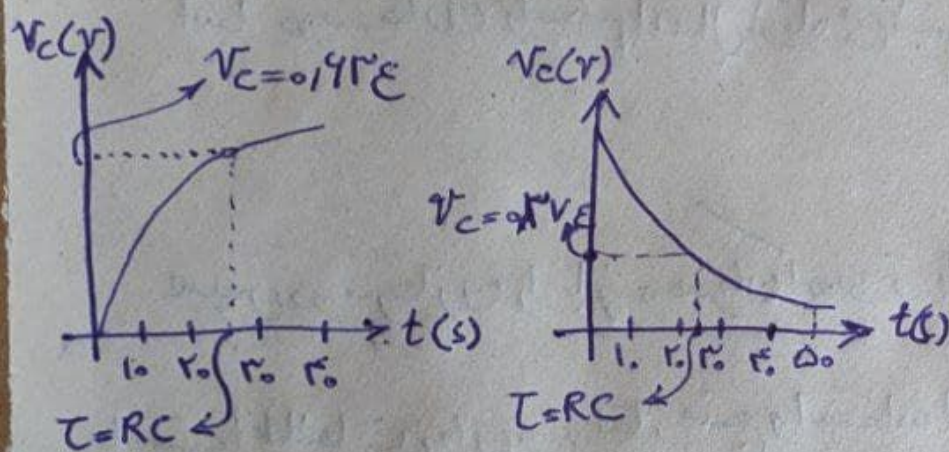 Vc(v)
Vc=۰,۶۳ε
۱۰ ۲۰ ۳۰ ۴۰
t(s)
τ=RC
Vc(v)
Vc=۰,۳۷ε
۱۰ ۲۰ ۳۰ ۴۰ ۵۰
t(s)
τ=RC